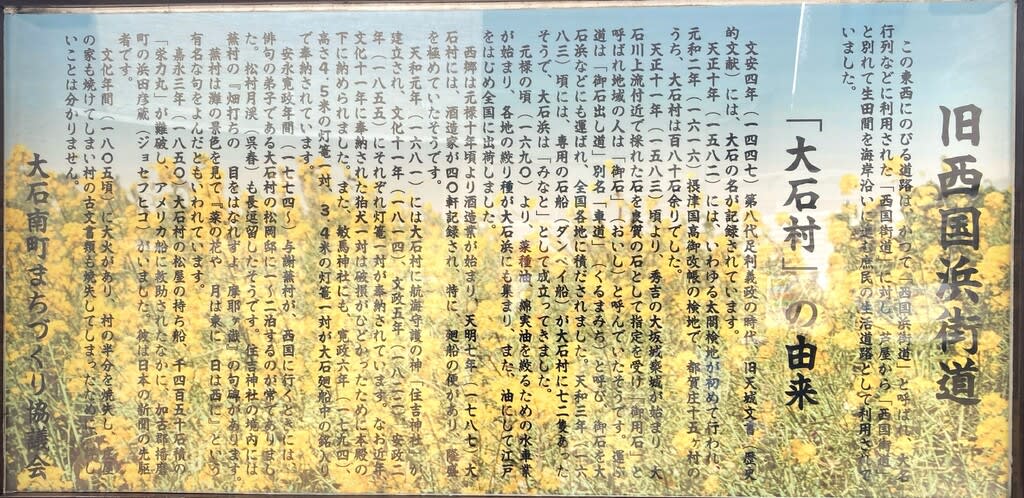 旧西国浜街道
この東西にのびる道路は、かつて「西国浜街道」と呼ばれ、大名
行列などに利用された「西国街道」に対し、芦屋から「西国街道」
と別れて生田間を海岸沿いに進む庶民の生活道路として利用されて
いました。
「大石村」の由来
文安四年（一四四七）第八代足利義政の時代、旧天城文書（歴史
的文献）には、大石の名が記録されています。
天正十年（一五八二）には、いわゆる太閤検地が初めて行われ、
元和二年（一六一六）摂津国高御改帳の検地で、都賀庄十五ヶ村の
うち、大石村は百八十石余りでした。
天正十一年（一五八三）頃より、秀吉の大坂城築城が始まり、大
石川上流付近で採れた石を良質の石として指定を受け「御用石」と
呼ばれ地域の人は「御石」（おいし）と呼んでいたそうです。運ぶ
道は「御石出し道」別名「車道」（くるまみち）と呼び、御石を大
石浜などにも運ばれ、全国各地に積だされました。天和三年（一六
八三）頃には、専用の石船（ダンベイ船）が大石村に七二隻あった
そうで、大石浜は「みなと」として成立ってきました。
元禄の頃（一六九〇）より、菜種油、綿実油を絞るための水車業
が始まり、各地の絞り種が大石浜にも集まり、また、油にして江戸
をはじめ全国に出荷しました。
西郷は元禄十年頃より酒造業が始まり、天明七年（一七八七）大
石村には、酒造家が四〇軒記録され、特に、廻船の便があり、隆盛
を極めていたそうです。
天和元年（一六八一）には大石村に航海守護の神「住吉神社」が
建立され、文化十一年（一八一四）、文政五年（一八二二）、安政二
年（一八五五）にそれぞれ灯篭一対が奉納されています。なお近年
文化十一年に奉納された狛犬一対は破損がひどかったために本殿の
下に納められました。また、敏馬神社にも、寛政六年（一七九四）
高さ4．5米の灯篭一対、3．4米の灯篭一対が大石廻船中の銘入り
で奉納されています。
安永寛政年間（一七七四～）与謝蕪村が、西国に行くときには、
俳句の弟子である大石村の松岡邸に一～二泊するのが常でありまし
た。松村月渓（呉春）も長逗留したそうです。住吉神社の境内には
蕪村の『畑打ちの 目をはなれずよ 摩耶ヶ嶽』の句碑があります。
蕪村は灘の景色を見て『菜の花や 月は東に 日は西に』という
有名な句をよんだともいわれています。
嘉永三年（一八五〇）大石村の松屋の持ち船、千四百五十石積の
「栄力丸」が難破し、アメリカ船に救助されたなかに、加古郡播磨
町の浜田彦蔵（ジョセフヒコ）がいました。彼は日本の新聞の先駆
者です。
文化年間（一八〇五頃）に大火があり、村の半分を焼失し、庄屋
の家も焼けてしまい村の古文書類も焼失してしまったため、詳し
いことは分かりません。
大石南町まちづくり協議会